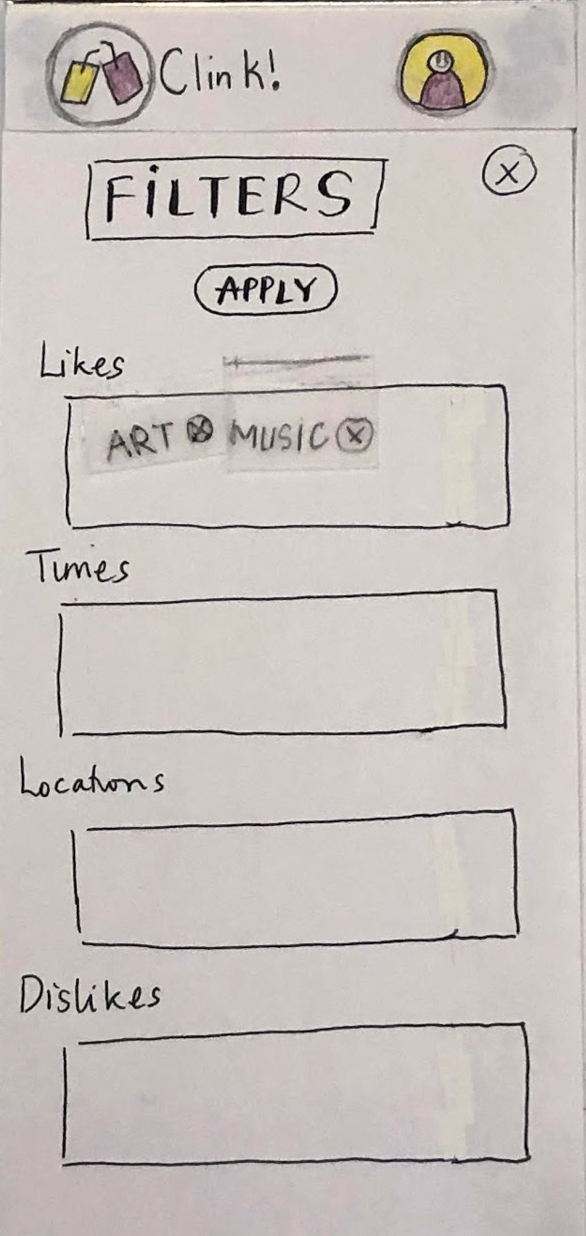 Clink!
FILTERS
APPLY
Likes
ART MUSIC
Times
Locations
Dislikes